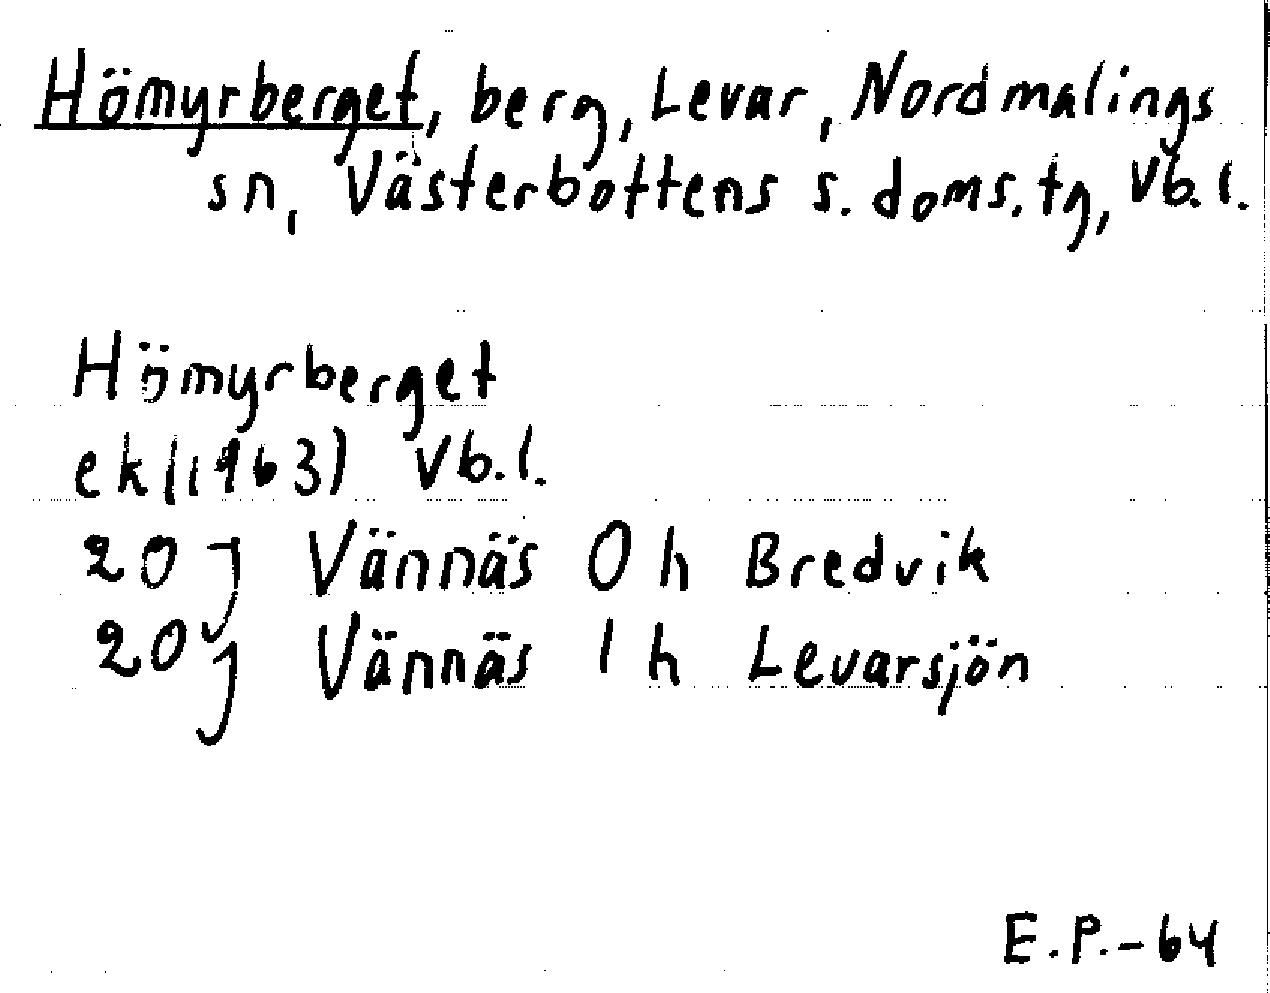 Hömyrberget, berg, Levar, Nordmalings
sn, Västerbottens s. doms. tg, Vb. l.
Hömyrberget
ek (1963) Vb. l.
20 J Vännäs 0 h Bredvik
20 J Vännäs 1 h Levarsjön
E.P.-64